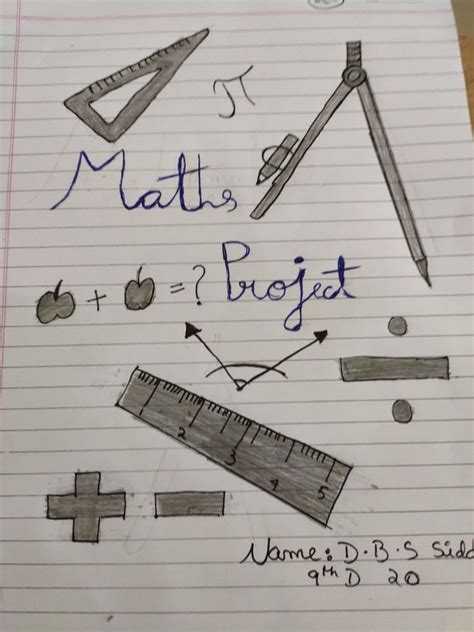 π
Maths
+ = ? Project
÷
1 2 3 4 5
+ −
Name: D.B.S Sidd
9th D 20